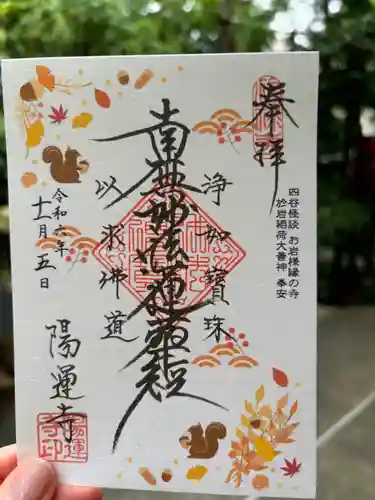 奉拝
四谷怪談 お岩様縁の寺
於岩稲荷大善神 奉安
浄如寶珠
南無妙法蓮華経
以求佛道
令和六年
十一月五日
陽運寺